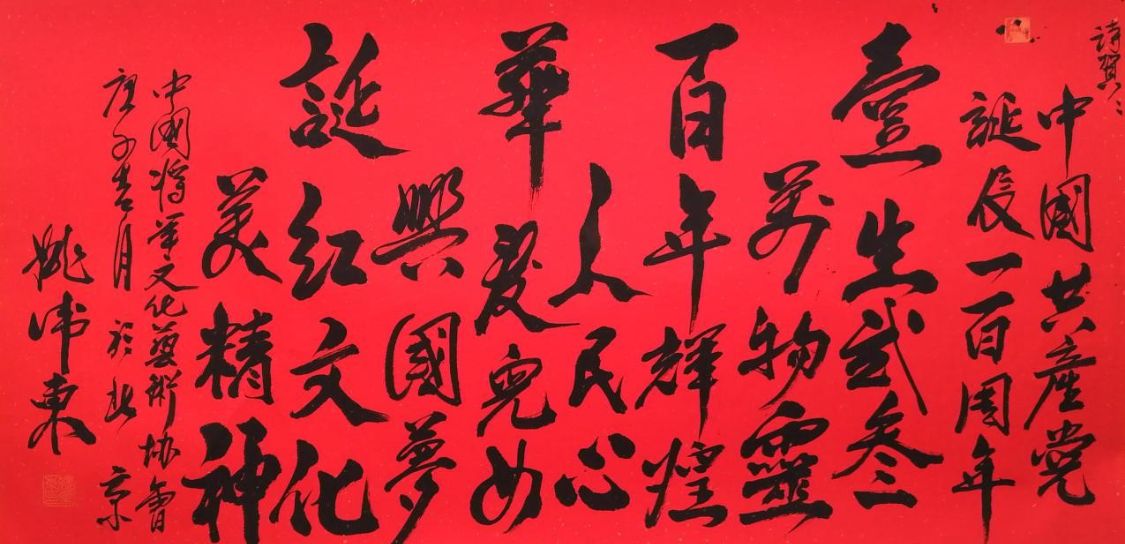 詩賀:
中國共產党
誕辰一百周年
壹生弍叁
萬物靈
百年輝煌
人民心
華夏兒女
興國夢
誕红文化
美精神
中國将軍文化藝術协會
庚子春月於北京
姚伟東